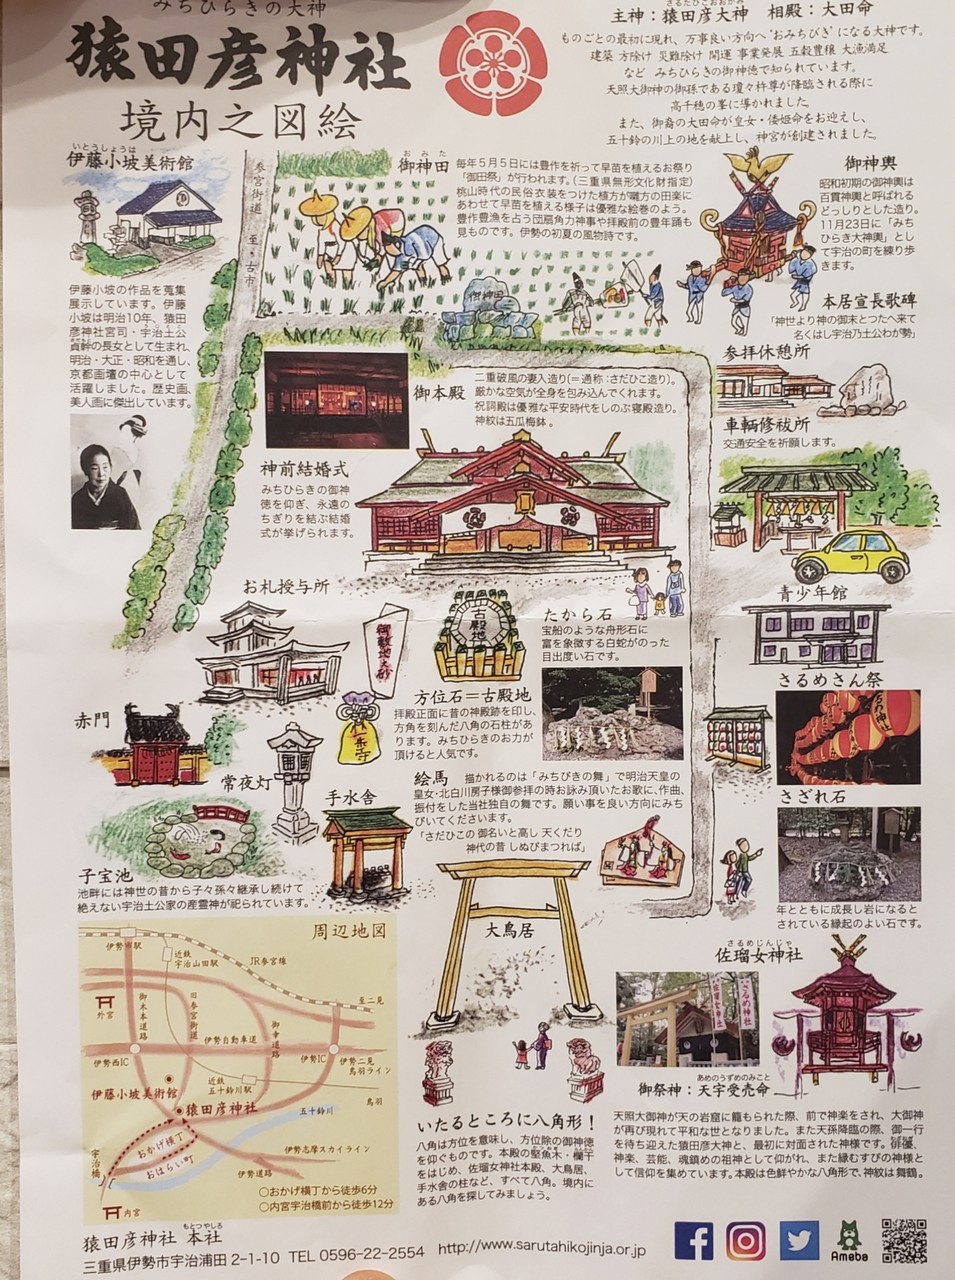 みちひらきの大神
猿田彦神社
境内之図絵
さるたひこおおかみ
主神：猿田彦大神　相殿：大田命
ものごとの最初に現れ、万事良い方向へ“おみちびき”になる大神です。
建築 方除け 災難除け 開運 事業発展 五穀豊穣 大漁満足
など　みちひらきの御神徳で知られています。
天照大御神の御孫である瓊々杵尊が降臨される際に
高千穂の峯に導かれました。
また、御裔の大田命が皇女・倭姫命をお迎えし、
五十鈴の川上の地を献上し、神宮が創建されました。
いとうしょうは
伊藤小坡美術館
伊藤小坡の作品を蒐集
展示しています。伊藤
小坡は明治10年、猿田
彦神社宮司・宇治土公
貞幹の長女として生まれ、
明治・大正・昭和を通し、
京都画壇の中心として
活躍しました。歴史画、
美人画に傑出しています。
参宮街道
至・古市
おみた
御神田
毎年５月５日には豊作を祈って早苗を植えるお祭り
「御田祭」が行われます。（三重県無形文化財指定）
桃山時代の民俗衣装をつけた植方が囃方の田楽に
あわせて早苗を植える様子は優雅な絵巻のよう。
豊作豊漁を占う団扇角力神事や拝殿前の豊年踊も
見ものです。伊勢の初夏の風物詩です。
御神田
御神輿
昭和初期の御神輿は
百貫神輿と呼ばれる
どっしりとした造り。
11月23日に「みち
ひらき大神輿」とし
て宇治の町を練り歩
きます。
本居宣長歌碑
「神世より神の御末とつたへ来て
名くはし宇治乃土公わが勢」
参拝休憩所
車輌修祓所
交通安全を祈願します。
御本殿
二重破風の妻入造り（＝通称：さだひこ造り）。
厳かな空気が全身を包み込んでくれます。
祝詞殿は優雅な平安時代をしのぶ寝殿造り。
神紋は五瓜梅鉢 。
神前結婚式
みちひらきの御神
徳を仰ぎ、永遠の
ちぎりを結ぶ結婚
式が挙げられます。
お札授与所
御敷地之砂
古殿地
たから石
宝船のような舟形石に
富を象徴する白蛇がのった
目出度い石です。
方位石＝古殿地
拝殿正面に昔の神殿跡を印し、
方角を刻んだ八角の石柱があ
ります。みちひらきのお力が
頂けると人気です。
青少年館
さるめさん祭
赤門
常夜灯
手水舎
絵馬　描かれるのは「みちびきの舞」で明治天皇の
皇女・北白川房子様御参拝の時お詠み頂いたお歌に、作曲、
振付をした当社独自の舞です。願い事を良い方向にみち
びいてくださいます。
「さだひこの 御名いと高し 天くだり
神代の昔 しぬびまつれば」
さざれ石
年とともに成長し岩になると
されている縁起のよい石です。
子宝池
池畔には神世の昔から子々孫々継承し続けて
絶えない宇治土公家の産霊神が祀られています。
大鳥居
周辺地図
伊勢市駅
近鉄
宇治山田駅
JR参宮線
至二見
外宮
御木本道路
旧参宮街道
御幸道路
伊勢自動車道
伊勢西IC
伊勢IC
伊勢二見
鳥羽ライン
伊藤小坡美術館
近鉄
五十鈴川駅
鳥羽
猿田彦神社
五十鈴川
おかげ横丁
おはらい町
宇治橋
伊勢志摩スカイライン
伊勢道路
内宮
○おかげ横丁から徒歩6分
○内宮宇治橋前から徒歩12分
さるめじんじゃ
佐瑠女神社
さるめ神社
佐瑠女神社
あめのうずめのみこと
御祭神：天宇受売命
天照大御神が天の岩窟に籠もられた際、前で神楽をされ、大御神
が再び現れて平和な世となりました。また天孫降臨の際、御一行
を待ち迎えた猿田彦大神と、最初に対面された神様です。俳優、
神楽、芸能、魂鎮めの祖神として仰がれ、また縁むすびの神様と
して信仰を集めています。本殿は色鮮やかな八角形で、神紋は舞鶴。
いたるところに八角形！
八角は方位を意味し、方位除の御神徳
を仰ぐものです。本殿の堅魚木・欄干
をはじめ、佐瑠女神社本殿、大鳥居、
手水舎の柱など、すべて八角。境内に
ある八角を探してみましょう。
もとつやしろ
猿田彦神社 本社
三重県伊勢市宇治浦田 2-1-10　TEL 0596-22-2554　http://www.sarutahikojinja.or.jp/
Ameba